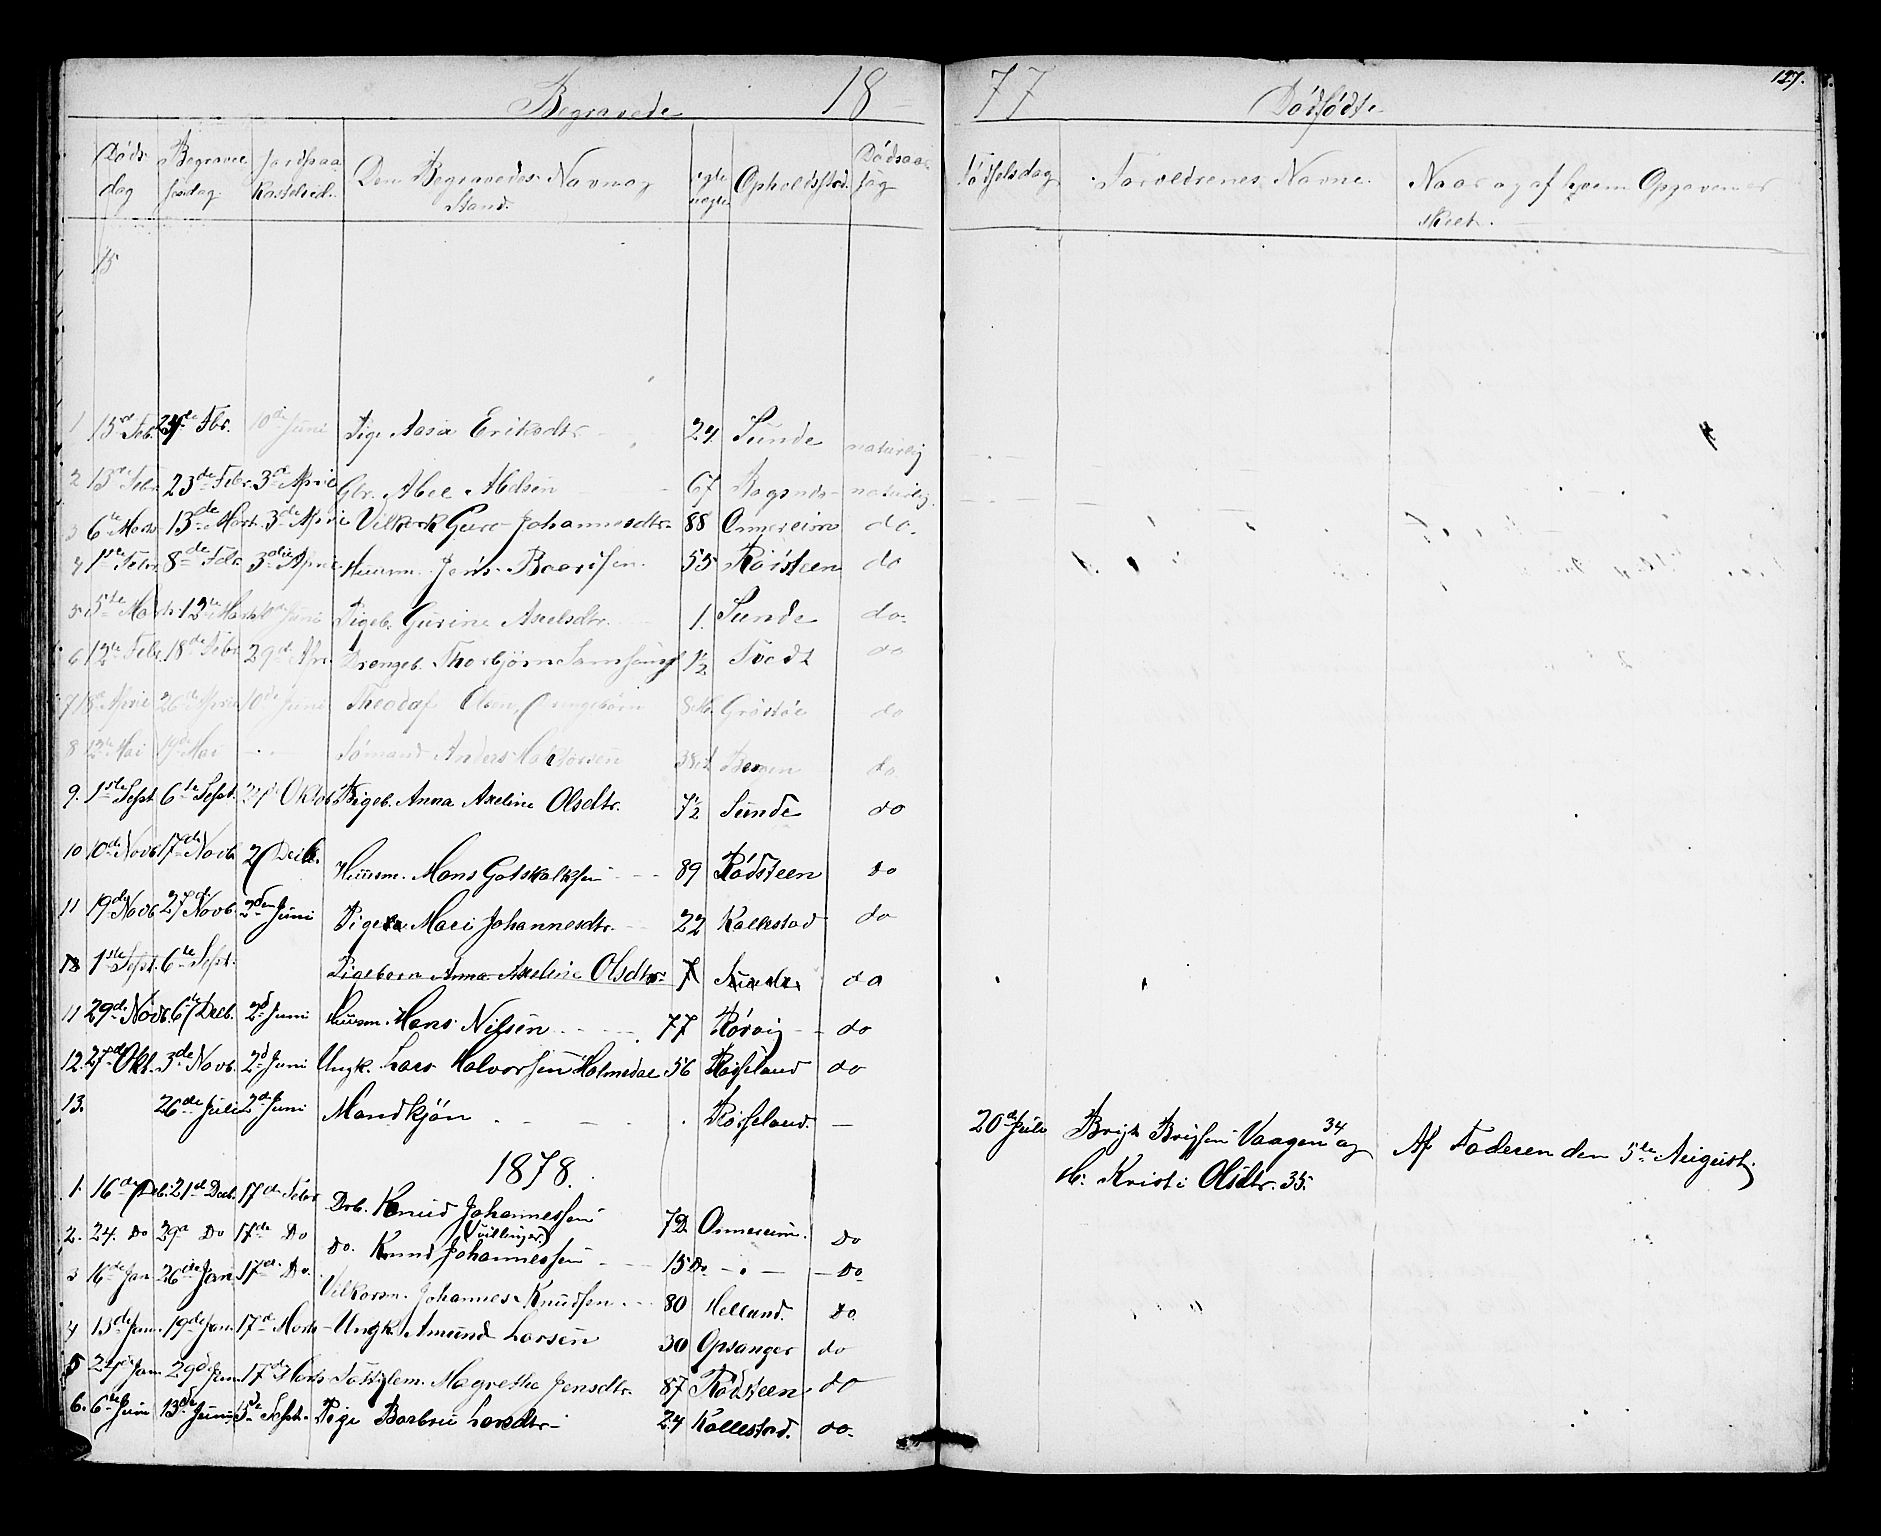 Begravede 18
Døds dag
Begravelsesdag
Jordpaakastelsed.
Den Begravedes Navn og Stand.
ægte uægte
Opholdssted.
Dødsaarsag
15
1 13de Feb. 24de Fbr. 10de Juni Pige Aasa Eriksdtr 24 Sunde naturlig
2 13de Febr. 23de Febr. 3de April Gbr. Abel Abelsen 67 naturlig
3 6te Marts 13de Mart. 3de April Vilkvk Guro Johannesdtr. 88 Ommereim do.
4 1ste Febr. 8de Febr. 3die April Huusm. Jøns Baardsen 55 Røisteen do
5 5de Marts 12te Marts 10de Juni Pigeb. Gurine Axelsdtr. 1. Sunde do.
6 12te Febr. 18de Febr. 29de Apr. Drengeb. Thorbjørn Samsung 1½ Tvedt do
7 18de April 26de April 10de Juni Theodaf Olsen, Drengebørn 8 M. do
8 12te Mai 19de Mai - - Sømand Anders do.
9. 1ste Sept. 6te Sept. 21de Oktob. Pigeb. Anna Axeline Olsdtr. 7½ Sunde do
10 10de Novb. 17de Novb. 2 Decb. Huusm. Mons Gotskalksen 89 Rødsteen do
11 19de Novb. 27de Novb. 2den Juni Pigen Mari Johannesdtr. 22 Kallestad do
12 1ste Sept. 6te Sept. Pigeborn Anna Axeline Olsdtr. 7 Sunde. do
11 29de Novb. 6te Decb. 2d Juni Huusm. Hans Nilsen 77 Rørvig do
12. 27de Okt. 3de Novb. 2d Juni Ungk. Lars Halvorsen Holmedal 56 Røiseland do
13. 26de Juli 2de Juni Mandkjøn Røiseland. —
1878.
1. 16de Deb. 21de Decb. 17de Febr. Drb. Knud Johannessen 7D. Ommereim. Do
(Tvillinger)
2. 24. Do 29de Do 17de Do Do. Knud Johannessen 15 Do. - " - Do.
3 16de Jan 26de Jan 17de Do. Vilkarsm. Johannes Knudsen 80 Helland. Do.
4 13de Jan. 19de Jan. 17de Marts Ungk. Amund Larsen 30 Opsanger do
5 24de Jan. 29de Jan. 17de Marts Fattiglem. Magrethe Jensdtr. 87 Rødsteen do
6. 6te Juni 13de Juni 15de Sept. Pige Barbru Larsdtr. 24 Kallestad. do.
77 Dødfødte
127.
Fødselsdag
Forældrenes Navne.
Naar og af hvem Opgaven er skeet.
20de Juli Brigt Brigtsen Vaagen 34 og Af Faderen den 5te August.
H. Kristi Olsdtr. 35.